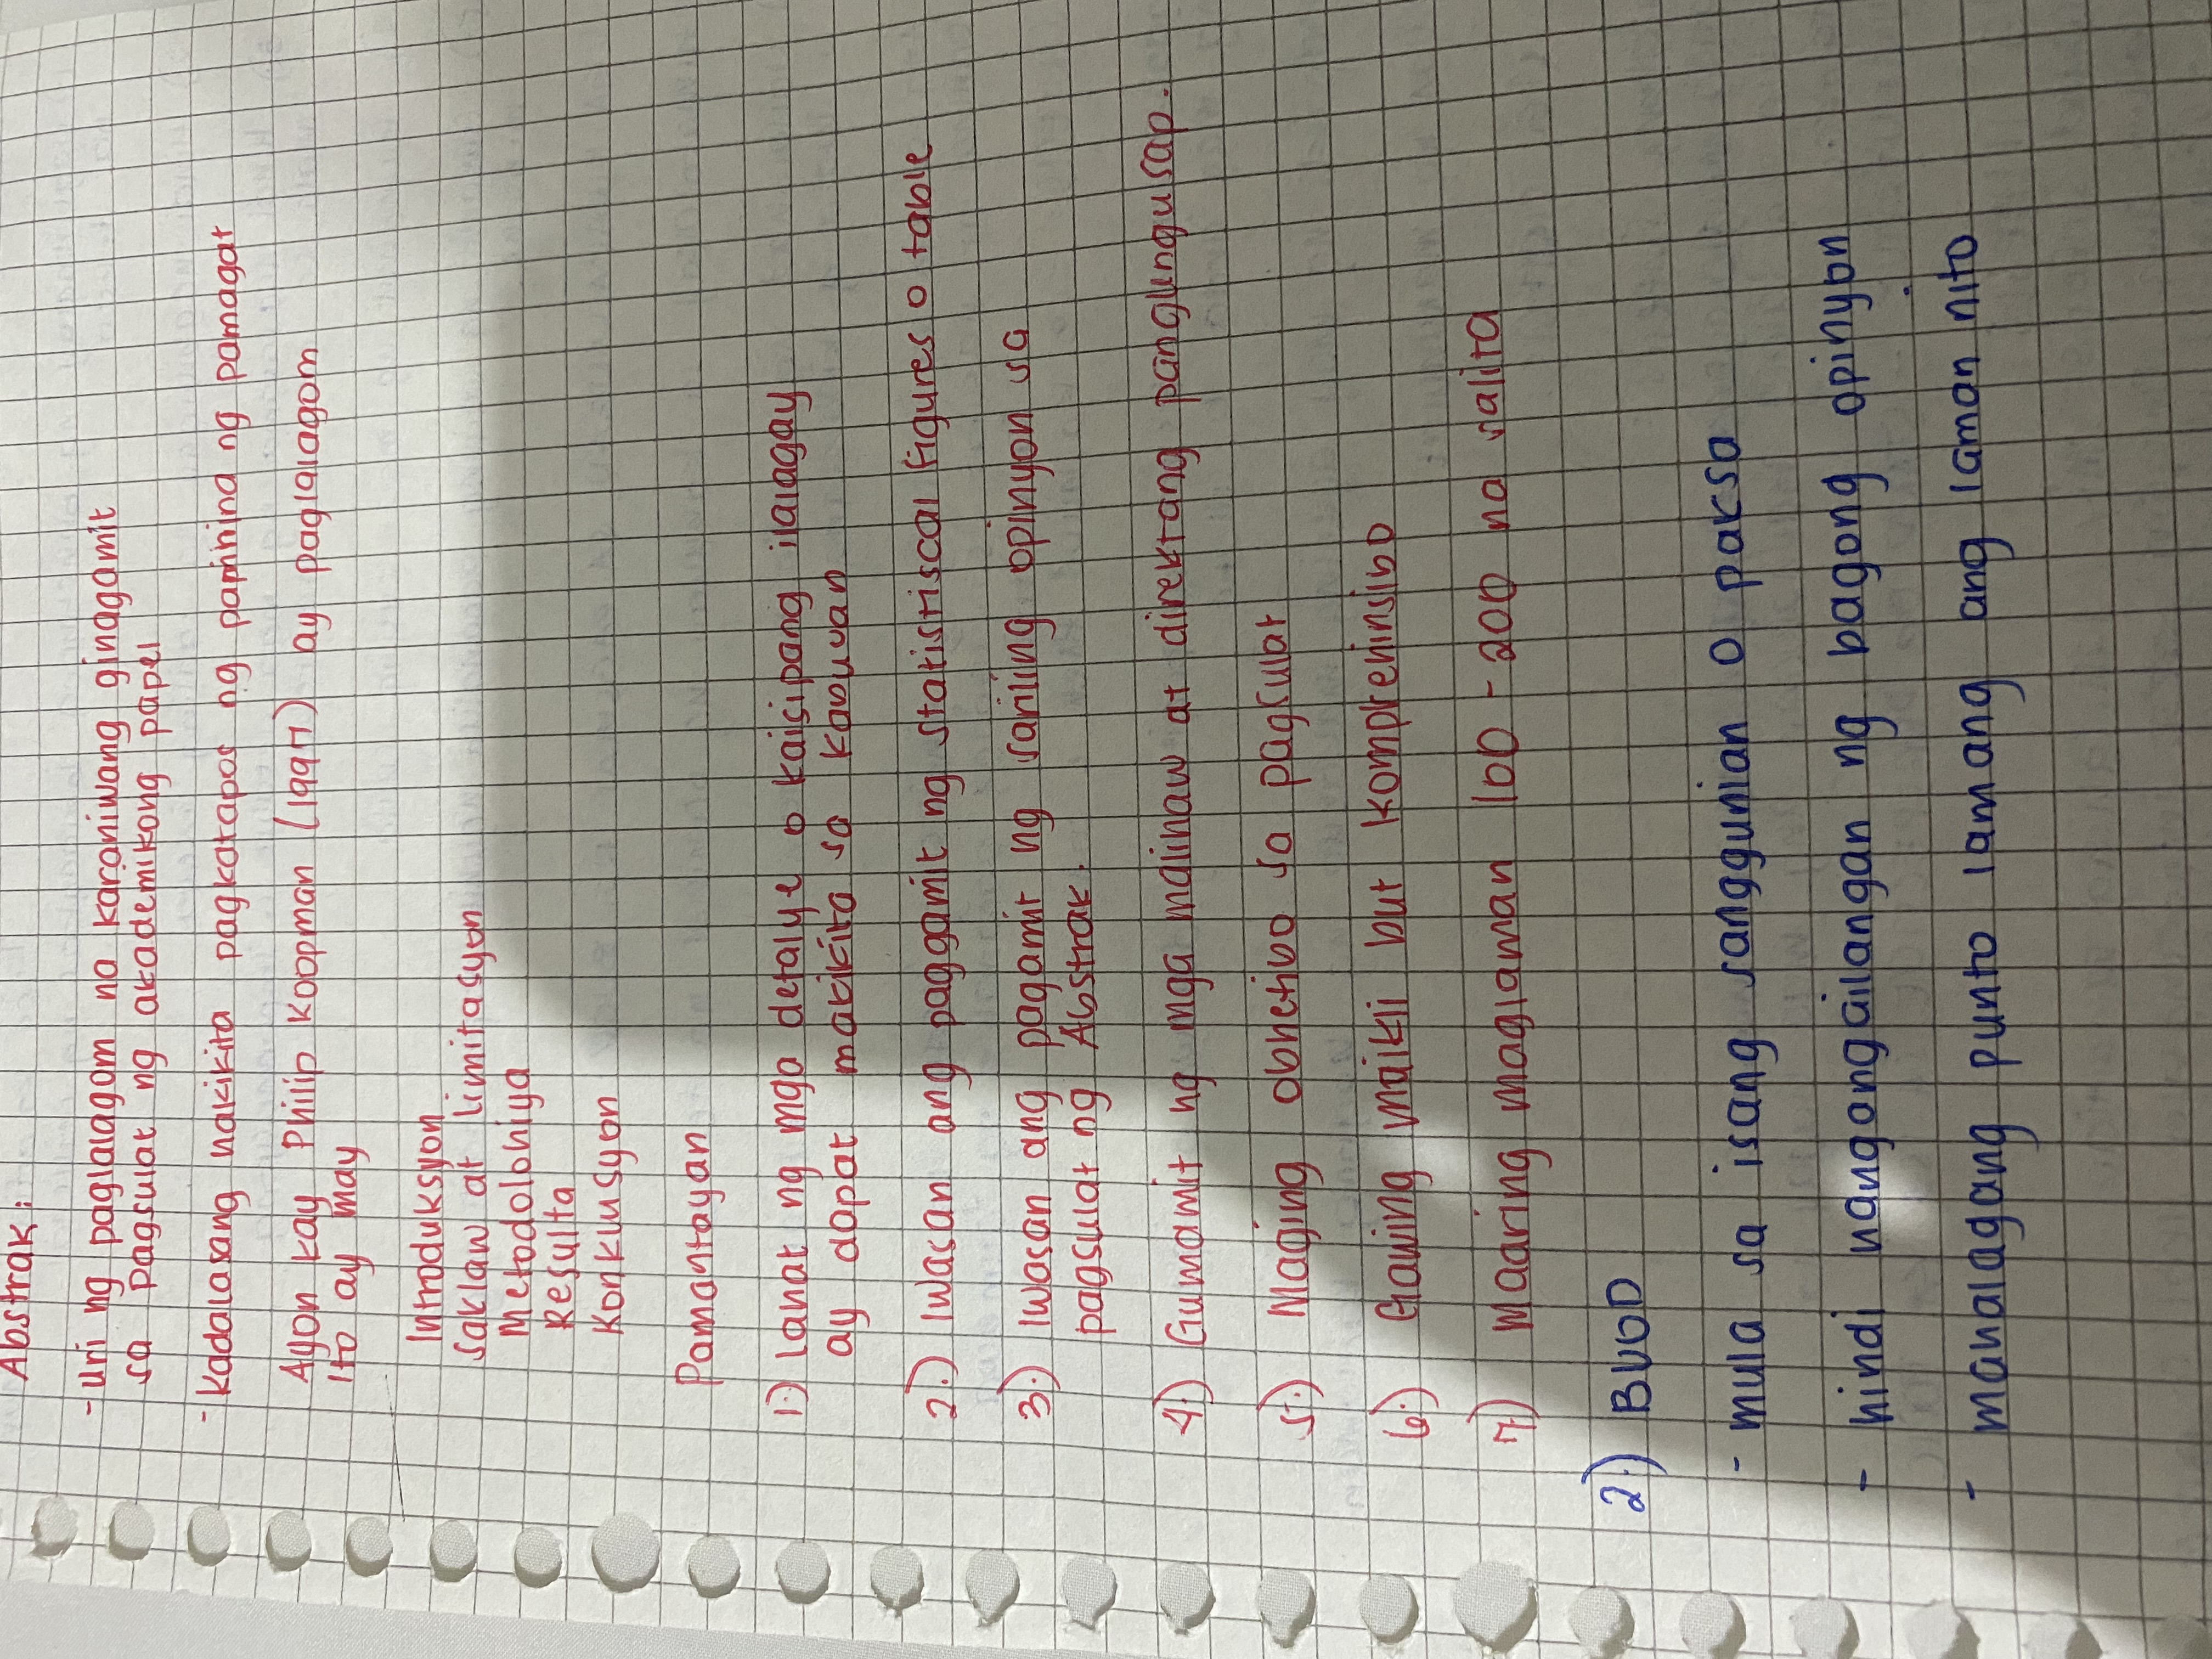 Abstrak:
- uri ng paglalagom na karaniwang ginagamit
sa pagsulat ng akademikong papel
- kadalasang nakikita pagkatapos ng pahining ng pamagat
Ayon kay Philip Koopman (1997) ay paglalagom
Ito ay may
Introduksyon
Saklaw at limitasyon
Metodolohiya
Resulta
Konklusyon
Pamantayan
1.) Lahat ng mga detalye o kaisipang ilalagay
ay dapat makikita sa kabuuan
2.) Iwasan ang paggamit ng statistiscal figures o table
3.) Iwasan ang pagamit ng sariling opinyon sa
pagsulat ng Abstrak.
4.) Gumamit ng mga malinaw at direktang panglungusap.
5.) Maging obhetibo sa pagsulat
6.) Gawing maikli but komprehinsibo
7.) Maaring maglaman 100 - 200 na salita
2.) BUOD
- mula sa isang sanggunian o paksa
- hindi nangangailangan ng bagong opinyon
- mahalagang punto lamang ang laman nito